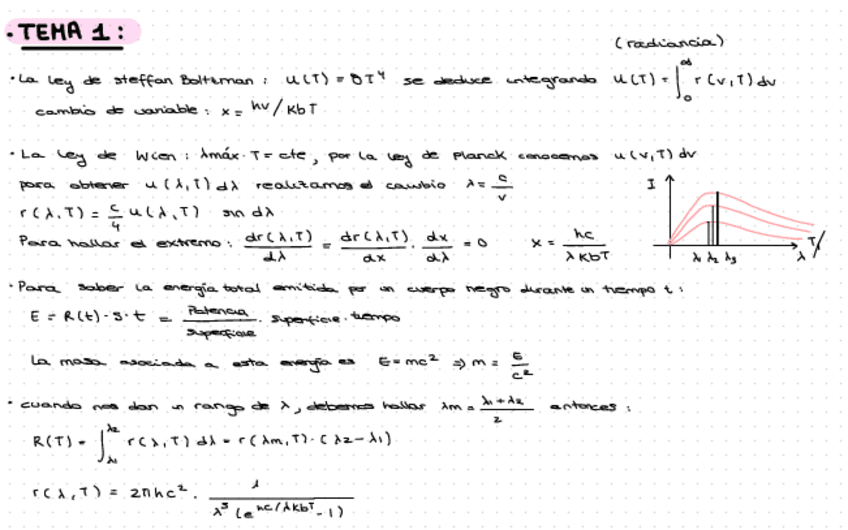 · TEMA 1:
(radiancia)
· La ley de steffan Boltzman: u(T) = σT⁴ se deduce integrando u(T) = ∫₀^∞ r(v,T) dv
cambio de variable: x = hv/KbT
· La ley de Wien: λmáx·T = cte, por la ley de Planck conocemos u(v,T) dv
para obtener u(λ,T) dλ realizamos el cambio λ = c/v
r(λ,T) = c/4 u(λ,T) sin dλ
Para hallar el extremo: dr(λ,T)/dλ = dr(λ,T)/dx · dx/dλ = 0 x = hc/λKbT
I
λ₁ λ₂ λ₃ λ T/
· Para saber la energía total emitida por un cuerpo negro durante un tiempo t:
E = R(t)·S·t = Potencia/superficie · superficie · tiempo
La masa asociada a esta energía es E=mc² ⇒ m = E/c²
· cuando nos dan un rango de λ, debemos hallar λm = λ₁+λ₂/2 entonces:
R(T) = ∫_λ₁^λ₂ r(λ,T) dλ = r(λm,T)·(λ₂-λ₁)
r(λ,T) = 2πhc² · 1/λ⁵(e^hc/λKbT -1)